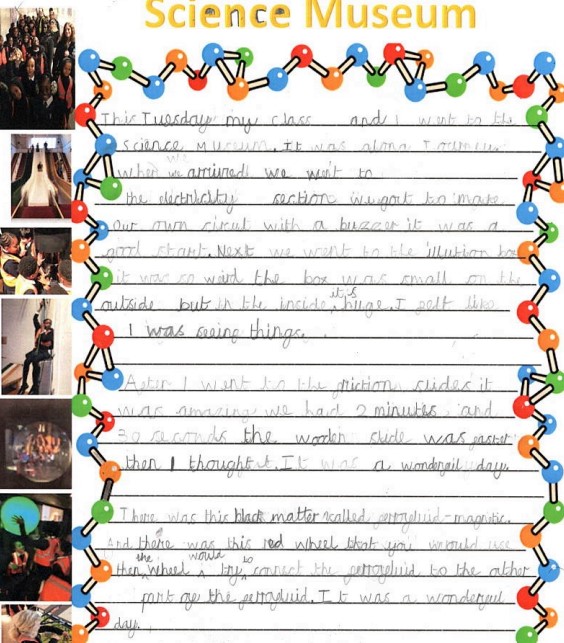 Science Museum
This Tuesday my class and I went to the
science Museum. It was along Journey
we
when we arrived we went to
the electricity section we got to make
Our own circut with a buzzer it was a
good start. Next we went to the illution box
it was so weird the box was small on the
it's
outside but in the incide, huge. I felt like
I was seeing things.
After I went to the friction slides it
was amazing we had 2 minutes and
30 seconds the wooden slide was faster
then I thought it. It was a wonderful day.
There was this black matter called ferrogluid-magnetic.
And there was this red wheel that you would use
the would to
then wheel try connect the ferrogluid to the other
part of the ferrogluid. It was a wonderful
day.